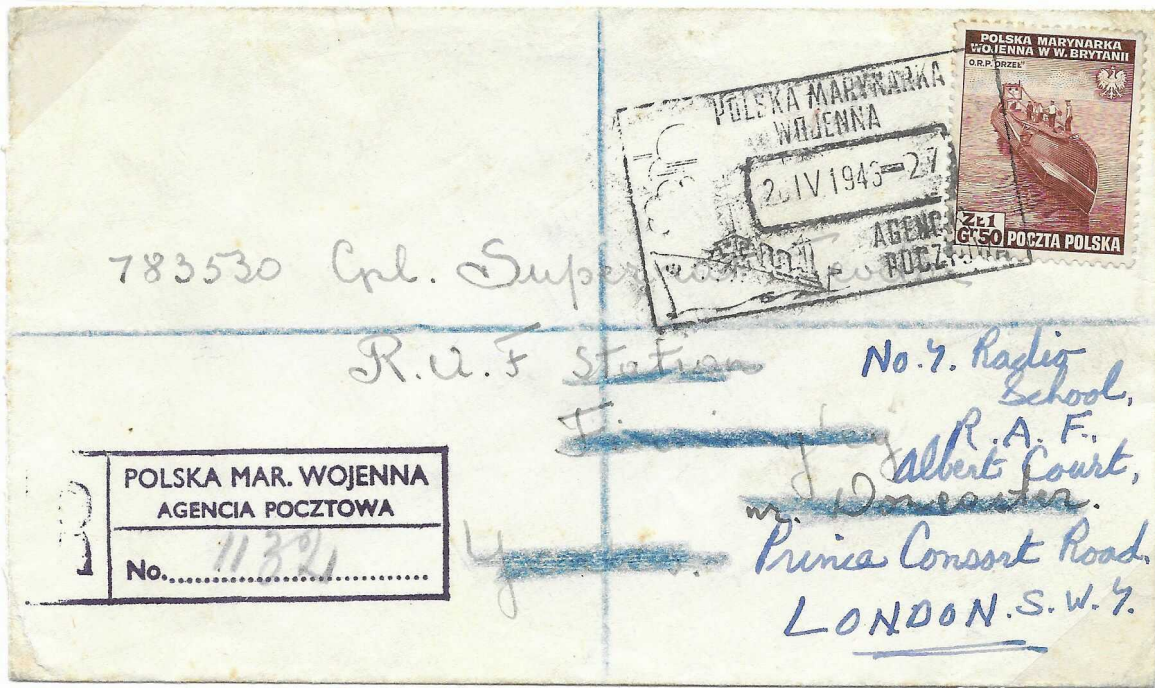 POLSKA MARYNARKA
WOJENNA W W. BRYTANII
O.R.P. „ORZEŁ"
ZŁ 1
GR 50 POCZTA POLSKA
POLSKA MARYNARKA
WOJENNA
IV 1943-27
AGENC
783530 Cpl.
R.A.F Station
nr. Doncaster.
No. 7. Radio
School,
R.A.F.,
Albert Court,
Prince Consort Road.
LONDON. S.W.7.
R
POLSKA MAR. WOJENNA
AGENCIA POCZTOWA
No. 1132